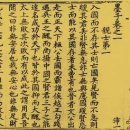 墨子卷之一
親士第一
入國而不存其士則亡國矣見賢而不急
則緩其君矣非賢無急非士無與慮國緩賢
忘士而能以其國存者未曾有也昔者文公出
走而正天下桓公去國而霸諸侯越王句踐
遇吳王之醜而尚攝中國之賢君三子之能
達名成功於天下也皆於其國抑而大醜也
太上無敗其次敗而有以成此之謂用民吾
聞之曰非無安居也我無安心也非無足財